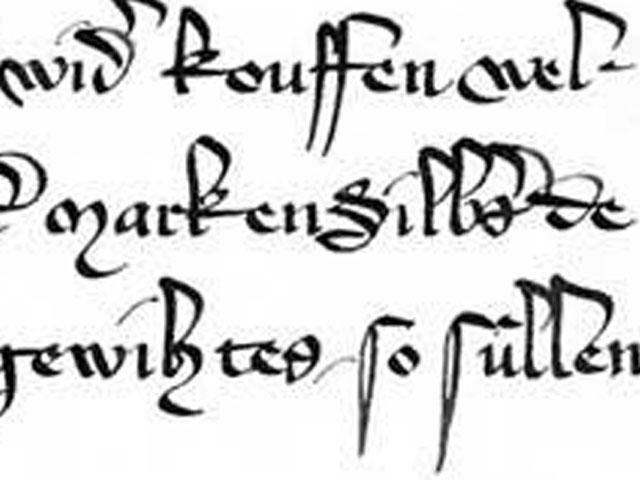 wid kouffen wel-
marken Silbs de
gewihtes so süllen